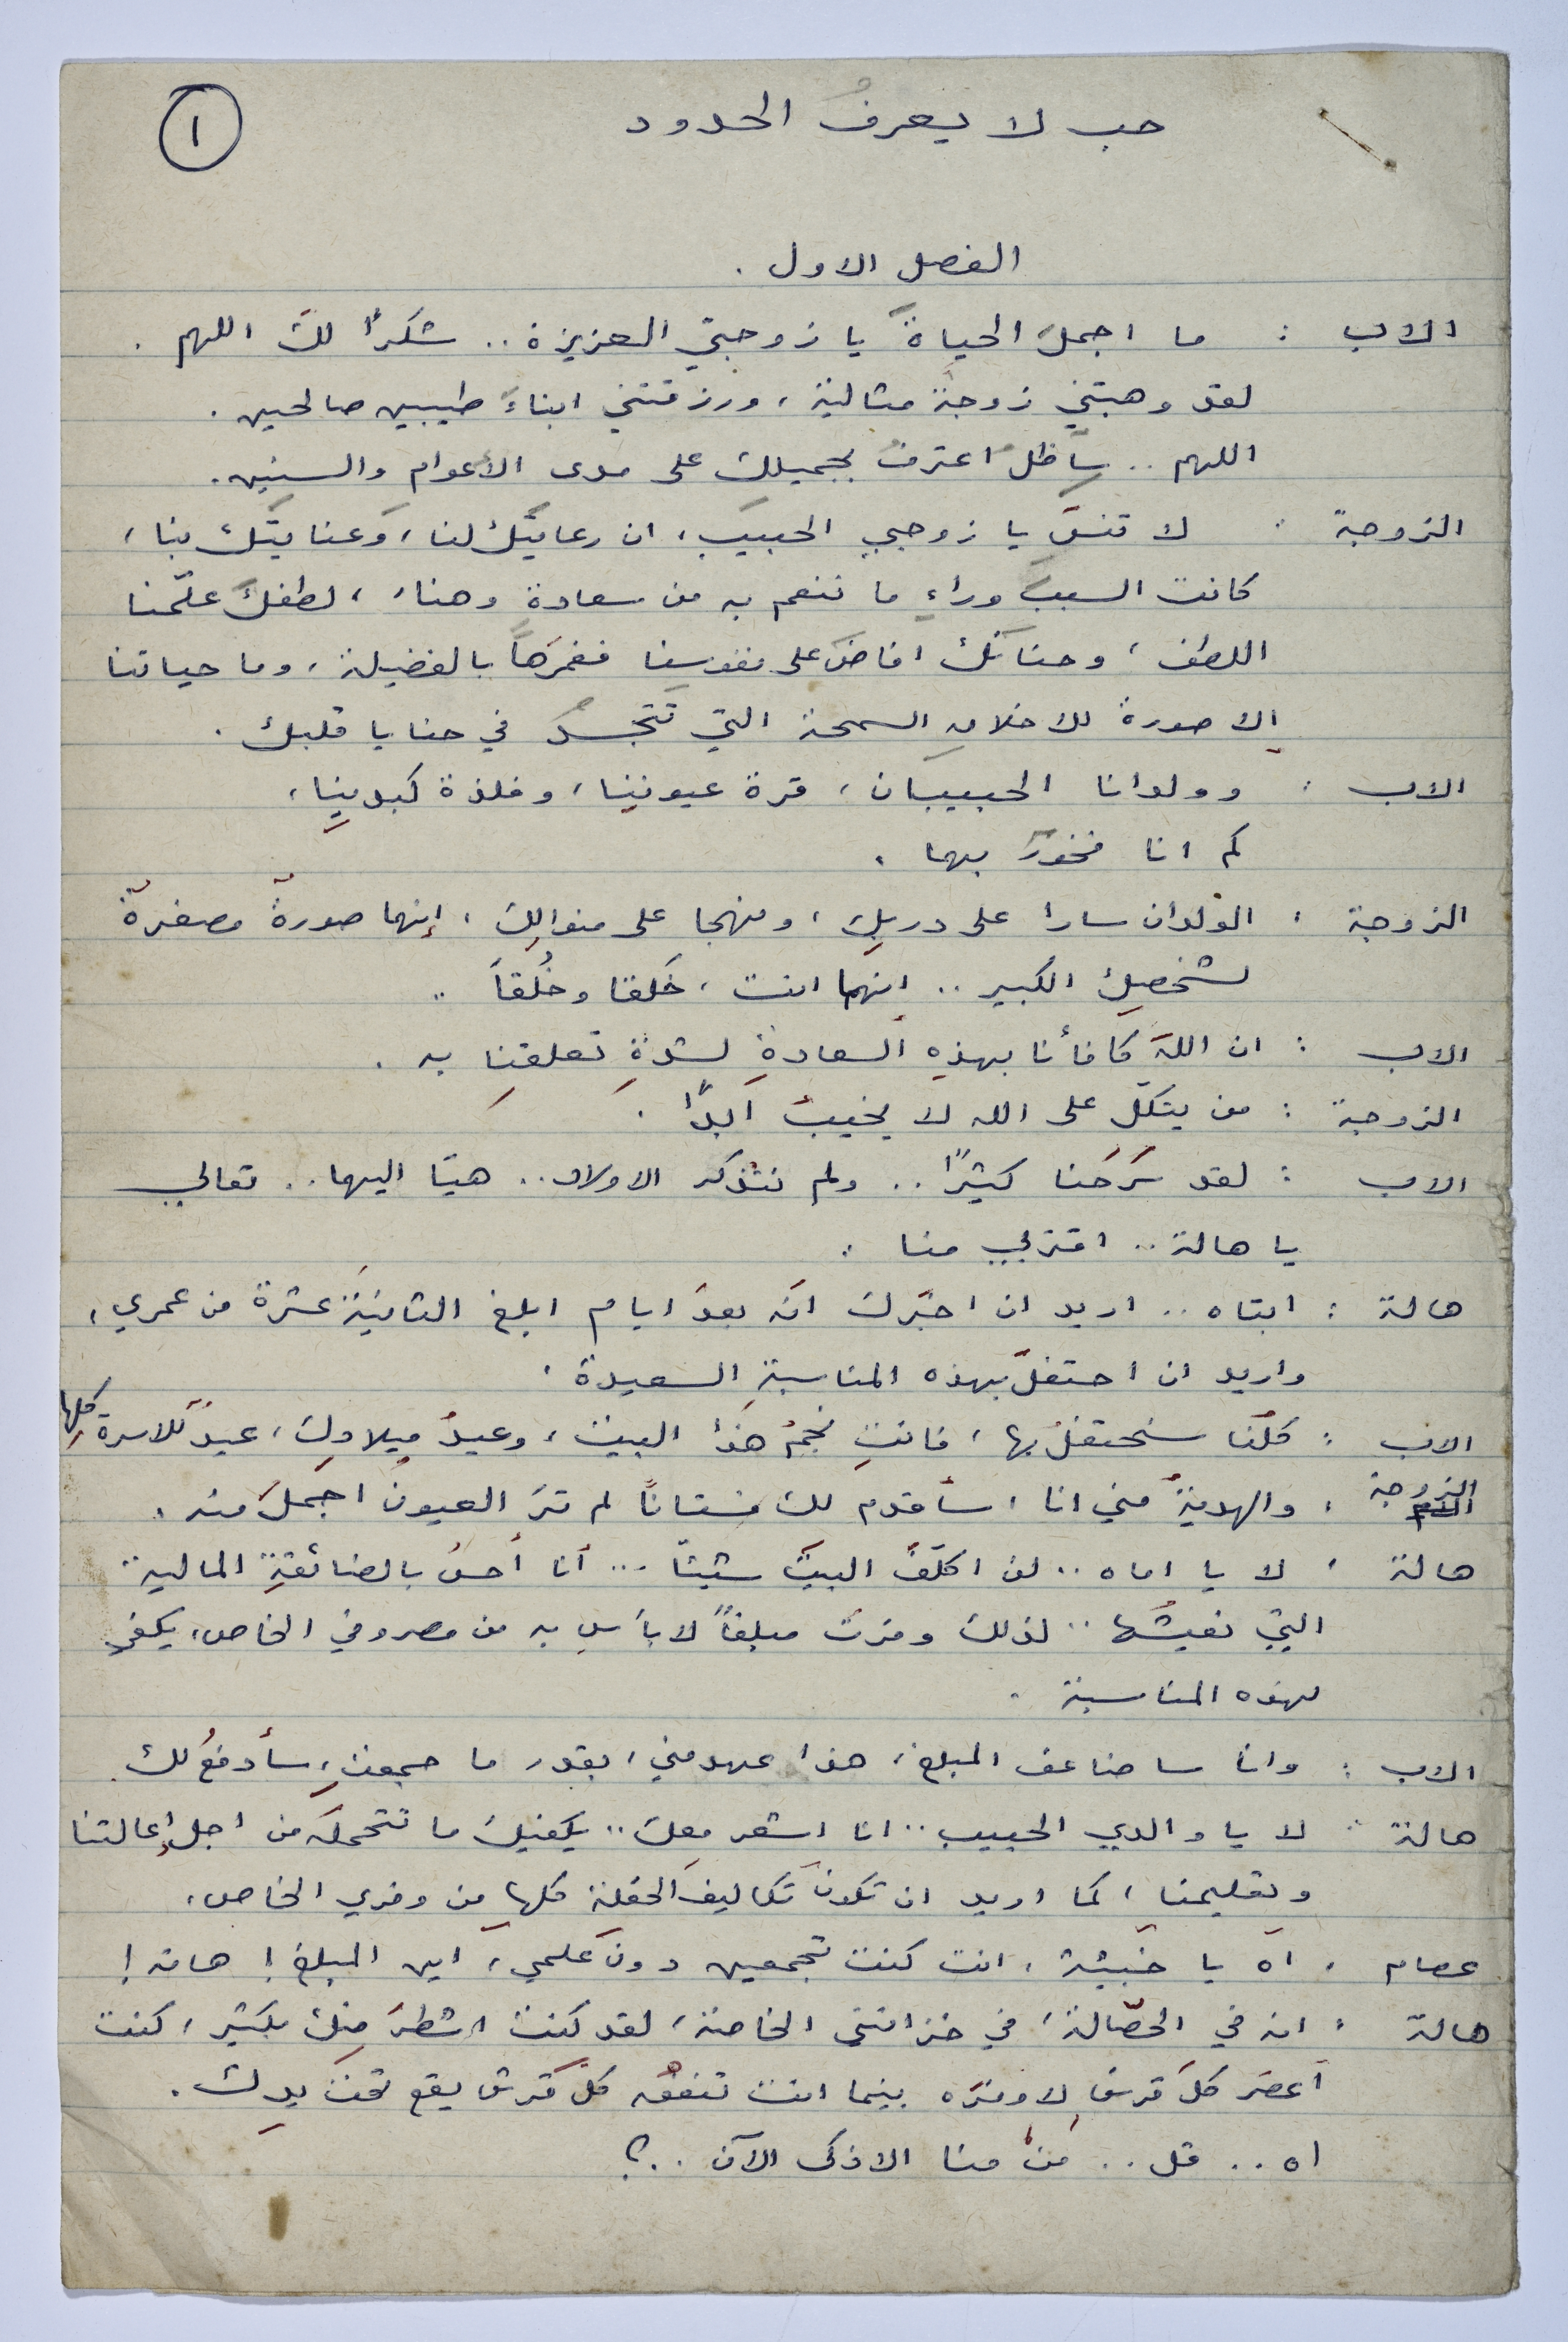 حب لا يعرفُ الحدود
١
الفصل الاول .
الاب : ما اجملَ الحياةَ يا زوجتي العزيزة .. شكراً لكَ اللهم .
لقد وهبتني زوجةً مثالية ، ورزقتني ابناءَ طيبين صالحين .
اللهم .. سأظل اعترفُ بجميلك على مدى الأعوام والسنين .
الزوجة : لا تنسَ يا زوجي الحبيب ، ان رعايتَك لنا ، وعنايتَك بنا ،
كانت السببَ وراءِ ما ننعم به من سعادةٍ وهناء ، لطفكَ علّمنا
اللطف ، وحنانك افاضَ على نفوسِنا فغمرَها بالفضيلة ، وما حياتنا
إلا صورة للاخلاق السمحة التي تتجسدُ في حنايا قلبك .
الاب : وولدانا الحبيبان ، قرة عيونِنا ، وفلذة كبدينِا ،
كم انا فخورٌ بهما .
الزوجة : الوَلدان سارا على دربِك ، ونهجا على منوالِكَ ، إنهما صورةٌ مصغرةٌ
لشخصِكِ الكبير .. انهما انت ، خَلقا وخُلقاً ..
الاب : ان اللهَ كافأنا بهذِه السعادةِ لشدةِ تعلقِنا به .
الزوجة : من يتكلّ على الله لا يخيبُ ابداً .
الاب : لقد سَرَحنا كثيراً .. ولم نتذكر الاولاد .. هيّا اليهما .. تعالي
يا هالة .. اقتربي منا .
هالة : ابتاه .. اريد ان اخبّرك انه بعدَ ايام ابلغ الثانيةَ عشرة من عمري ،
واريد ان احتفلَ بهذه المناسبةِ السعيدة .
الاب : كلّنا سنحتفلُ بها ، فانتِ نجمُ هذا البيت ، وعيدُ ميلادِك ، عيدٌ للاسرةِ كلها
الزوجة : والهديةُ مني انا ، سأقدم لك فستاناً لم ترَ العيونُ اجملَ منه .
هالة : لا يا اماه .. لن اكلّفَ البيتَ شيئاً ... أنا أحسُ بالضائقةِ المالية
التي نعيشُها .. لذلك وفرتُ مبلغاً لا بأسَ به من مصروفي الخاص ، يكفي
لهذه المناسبة .
الاب : وانا ساضاعف المبلغ ، هذا عهد مني ، بقدر ما جمعتِ ، سأدفعُ لك .
هالة : لا يا والدي الحبيب .. انا اشعر معك .. يكفيك ما تتحملَه من اجل إعالتنا
وتعليمنا ، كما اريد ان تكونَ تكاليفَ الحفلة كلها من وفري الخاص .
عصام : اه يا خبيثة ، انت كنت تجمعين دونَ علمي ، اين المبلغ ! هاته !
هالة : انه في الحصّالة ، في خزانتي الخاصة ، لقد كنت اشطرَ منك بكثير ، كنت
أعصَر كلَ قرشٍ لاوفرَه بينما انت تنفقُه كلَّ قرش يقع تحتَ يدِك .
اه .. قل .. مَنْ منا الاذكى الآن ..؟